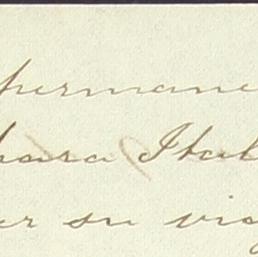 permane
para Ital
er su viaj